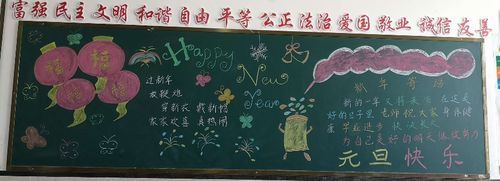 富强 民主 文明 和谐 自由 平等 公正 法治 爱国 敬业 诚信 友善
福
福
福
福
Happy
New
Year
过新年
放鞭炮
穿新衣 戴新帽
家家欢喜 真热闹
新年寄语
新的一年又将来临 在这美
好的日子里 老师祝大家 身体健
康 学业进步 快
为自己美好的明天继续努力
元旦快乐